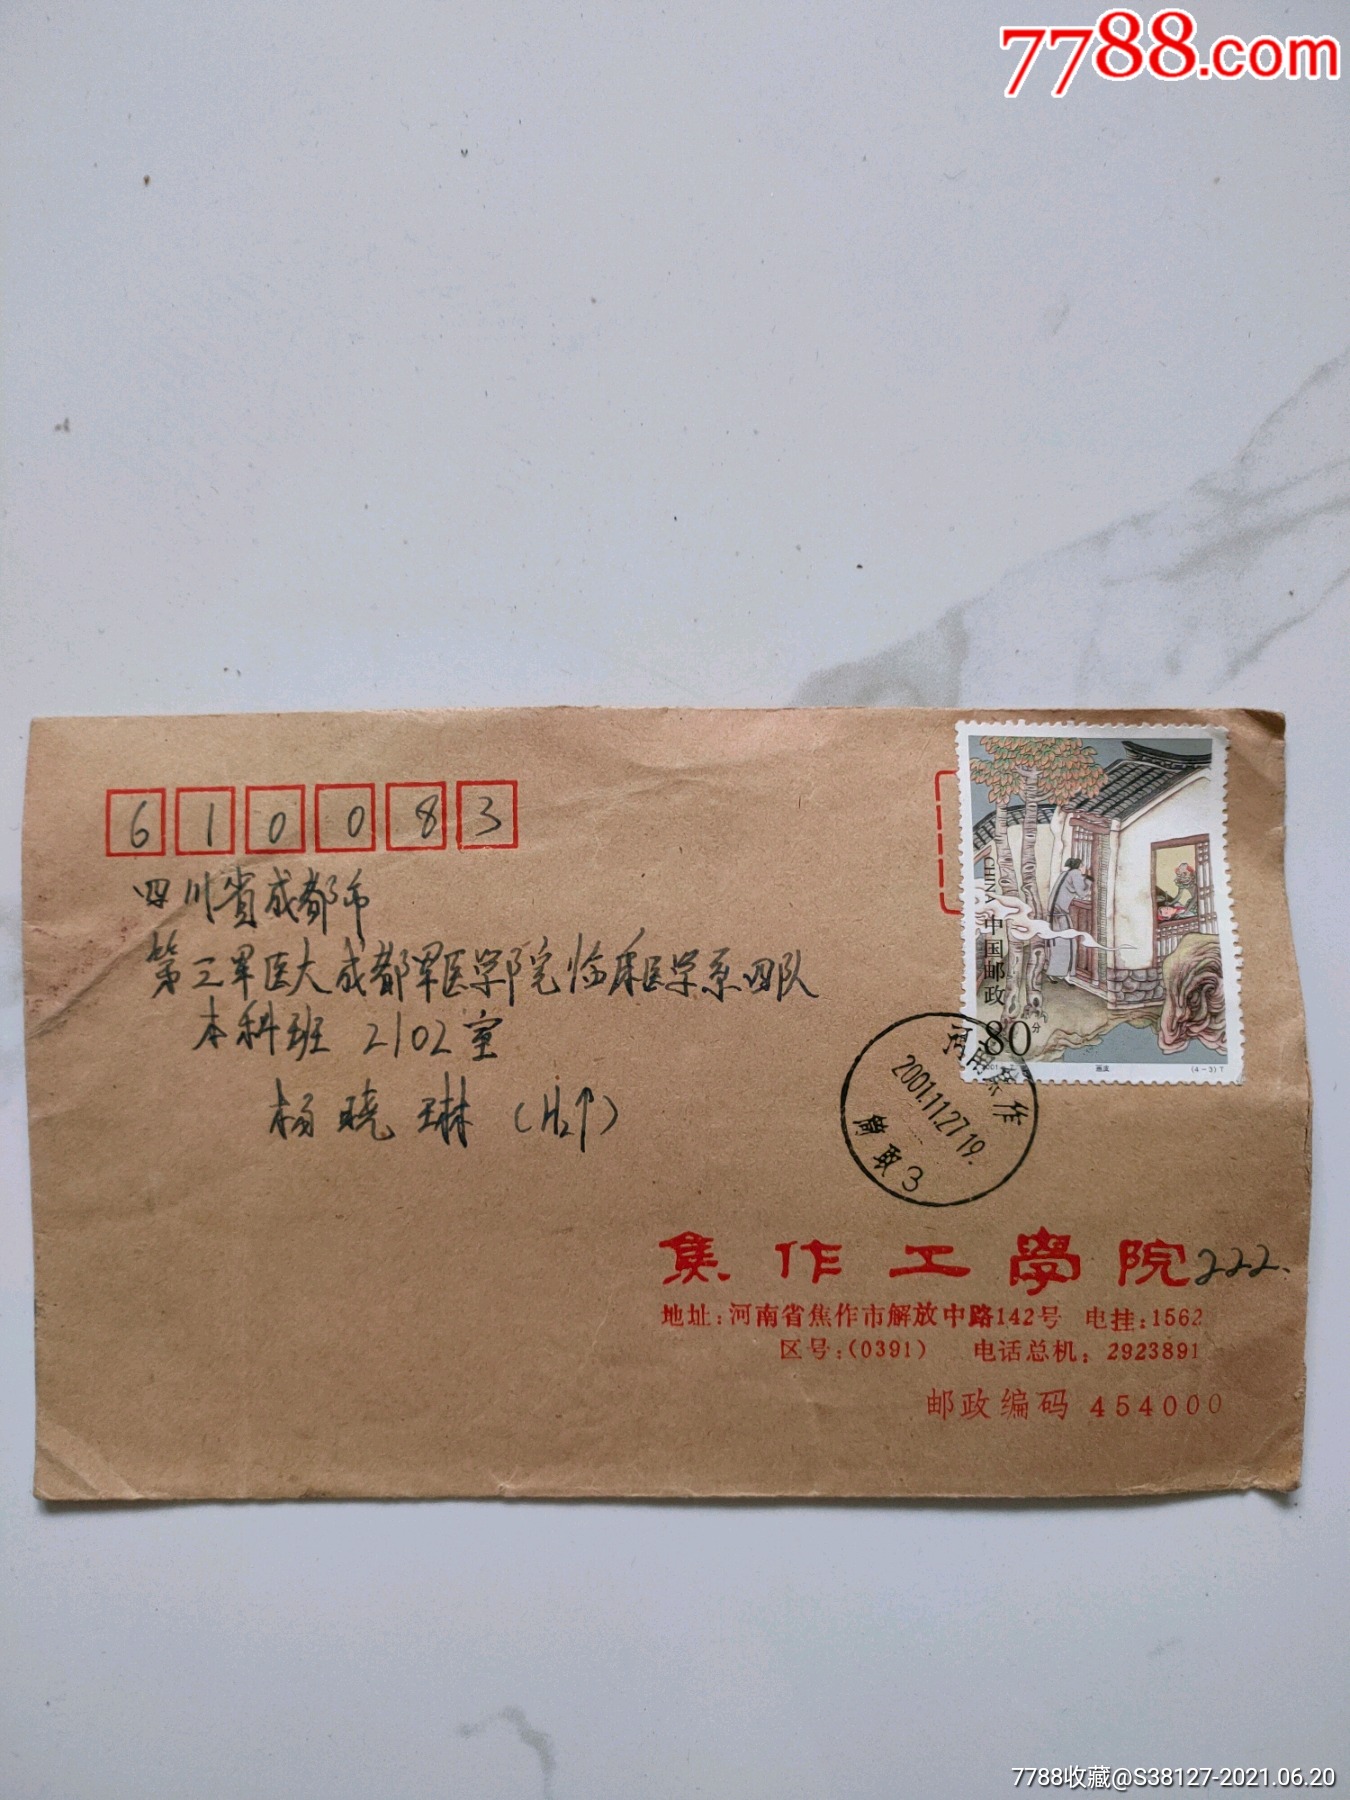 7788.com
610083
四川省成都市
第三军医大成都军医学院临床医学系四队
本科班 2102室
杨晓琳（收）
CHINA 中国邮政
80分
画皮
(4-3)T
河南焦作
2001.11.27 19.
筒取3
焦作工學院 222.
地址:河南省焦作市解放中路142号 电挂:1562
区号:(0391) 电话总机:2923891
邮政编码 454000
7788收藏@S38127-2021.06.20